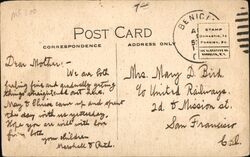 POST CARD
CORRESPONDENCE
ADDRESS ONLY
BENICI
STAMP
Dear Mother:—
We are both
feeling fine and gradually getting
things straightened out
May & Elvira came up and spent
the day with us yesterday.
Hope you are well with love
from both
your children
Marshall & Ruth.
Mrs. Mary D. Bird
c/o United Railways.
2d. & Mission st.
San Francisco
Cal.